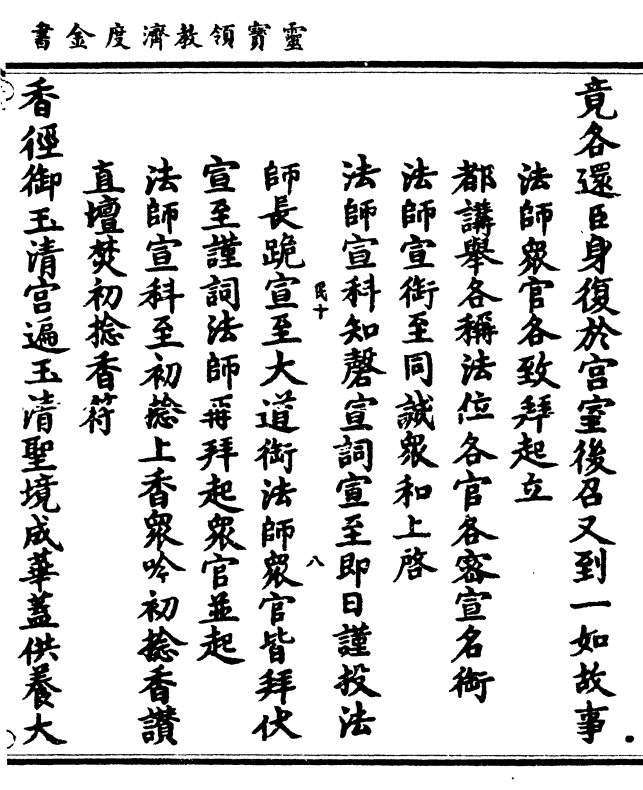 靈寶領教濟度金書
竟各還臣身復於宫室後召又到一如故事
法師衆官各致拜起立
都講舉各稱法位各官各密宣名銜
法師宣銜至同誠衆和上啓
法師宣科知磬宣詞宣至即日謹投法
民十
八
師長跪宣至大道銜法師衆官皆拜伏
宣至謹詞法師再拜起衆官並起
法師宣科至初捻上香衆吟初捻香讚
直壇焚初捻香符
香徑御玉清宫遍玉清聖境成華蓋供養大